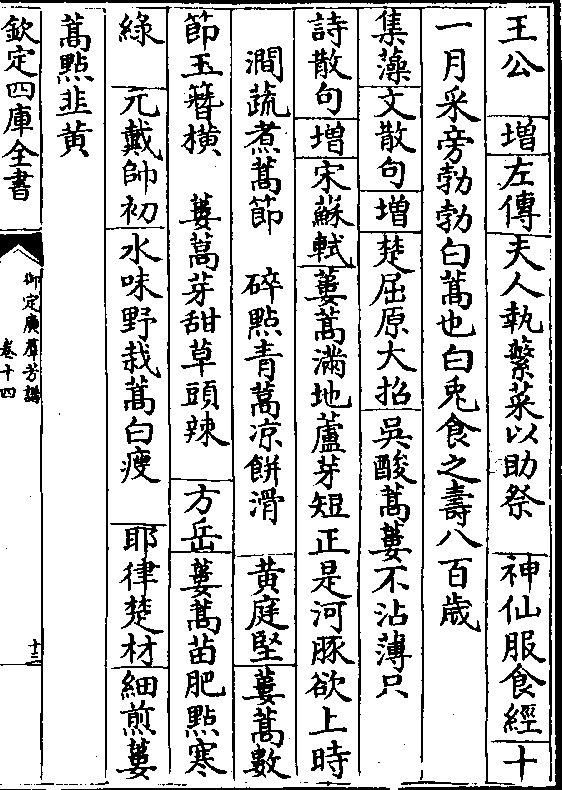 王公 增左傳夫人執蘩菜以助祭 神仙服食經十
一月采旁勃勃白蒿也白兎食之壽八百歲
集藻文散句增楚屈原大招吳酸蒿蔞不沾薄只
詩散句增宋蘇軾蔞蒿滿地蘆芽短正是河豚欲上時
澗蔬煮蒿節 碎點青蒿凉餅滑 黃庭堅蔞蒿數
節玉簪橫 蔞蒿芽甜草頭辣 方岳蔞蒿苗肥點寒
綠 元戴帥初水味野栽蒿白瘦 耶律楚材細煎蔞
蒿點韭黃
欽定四庫全書
御定廣群芳譜
卷十四
十三